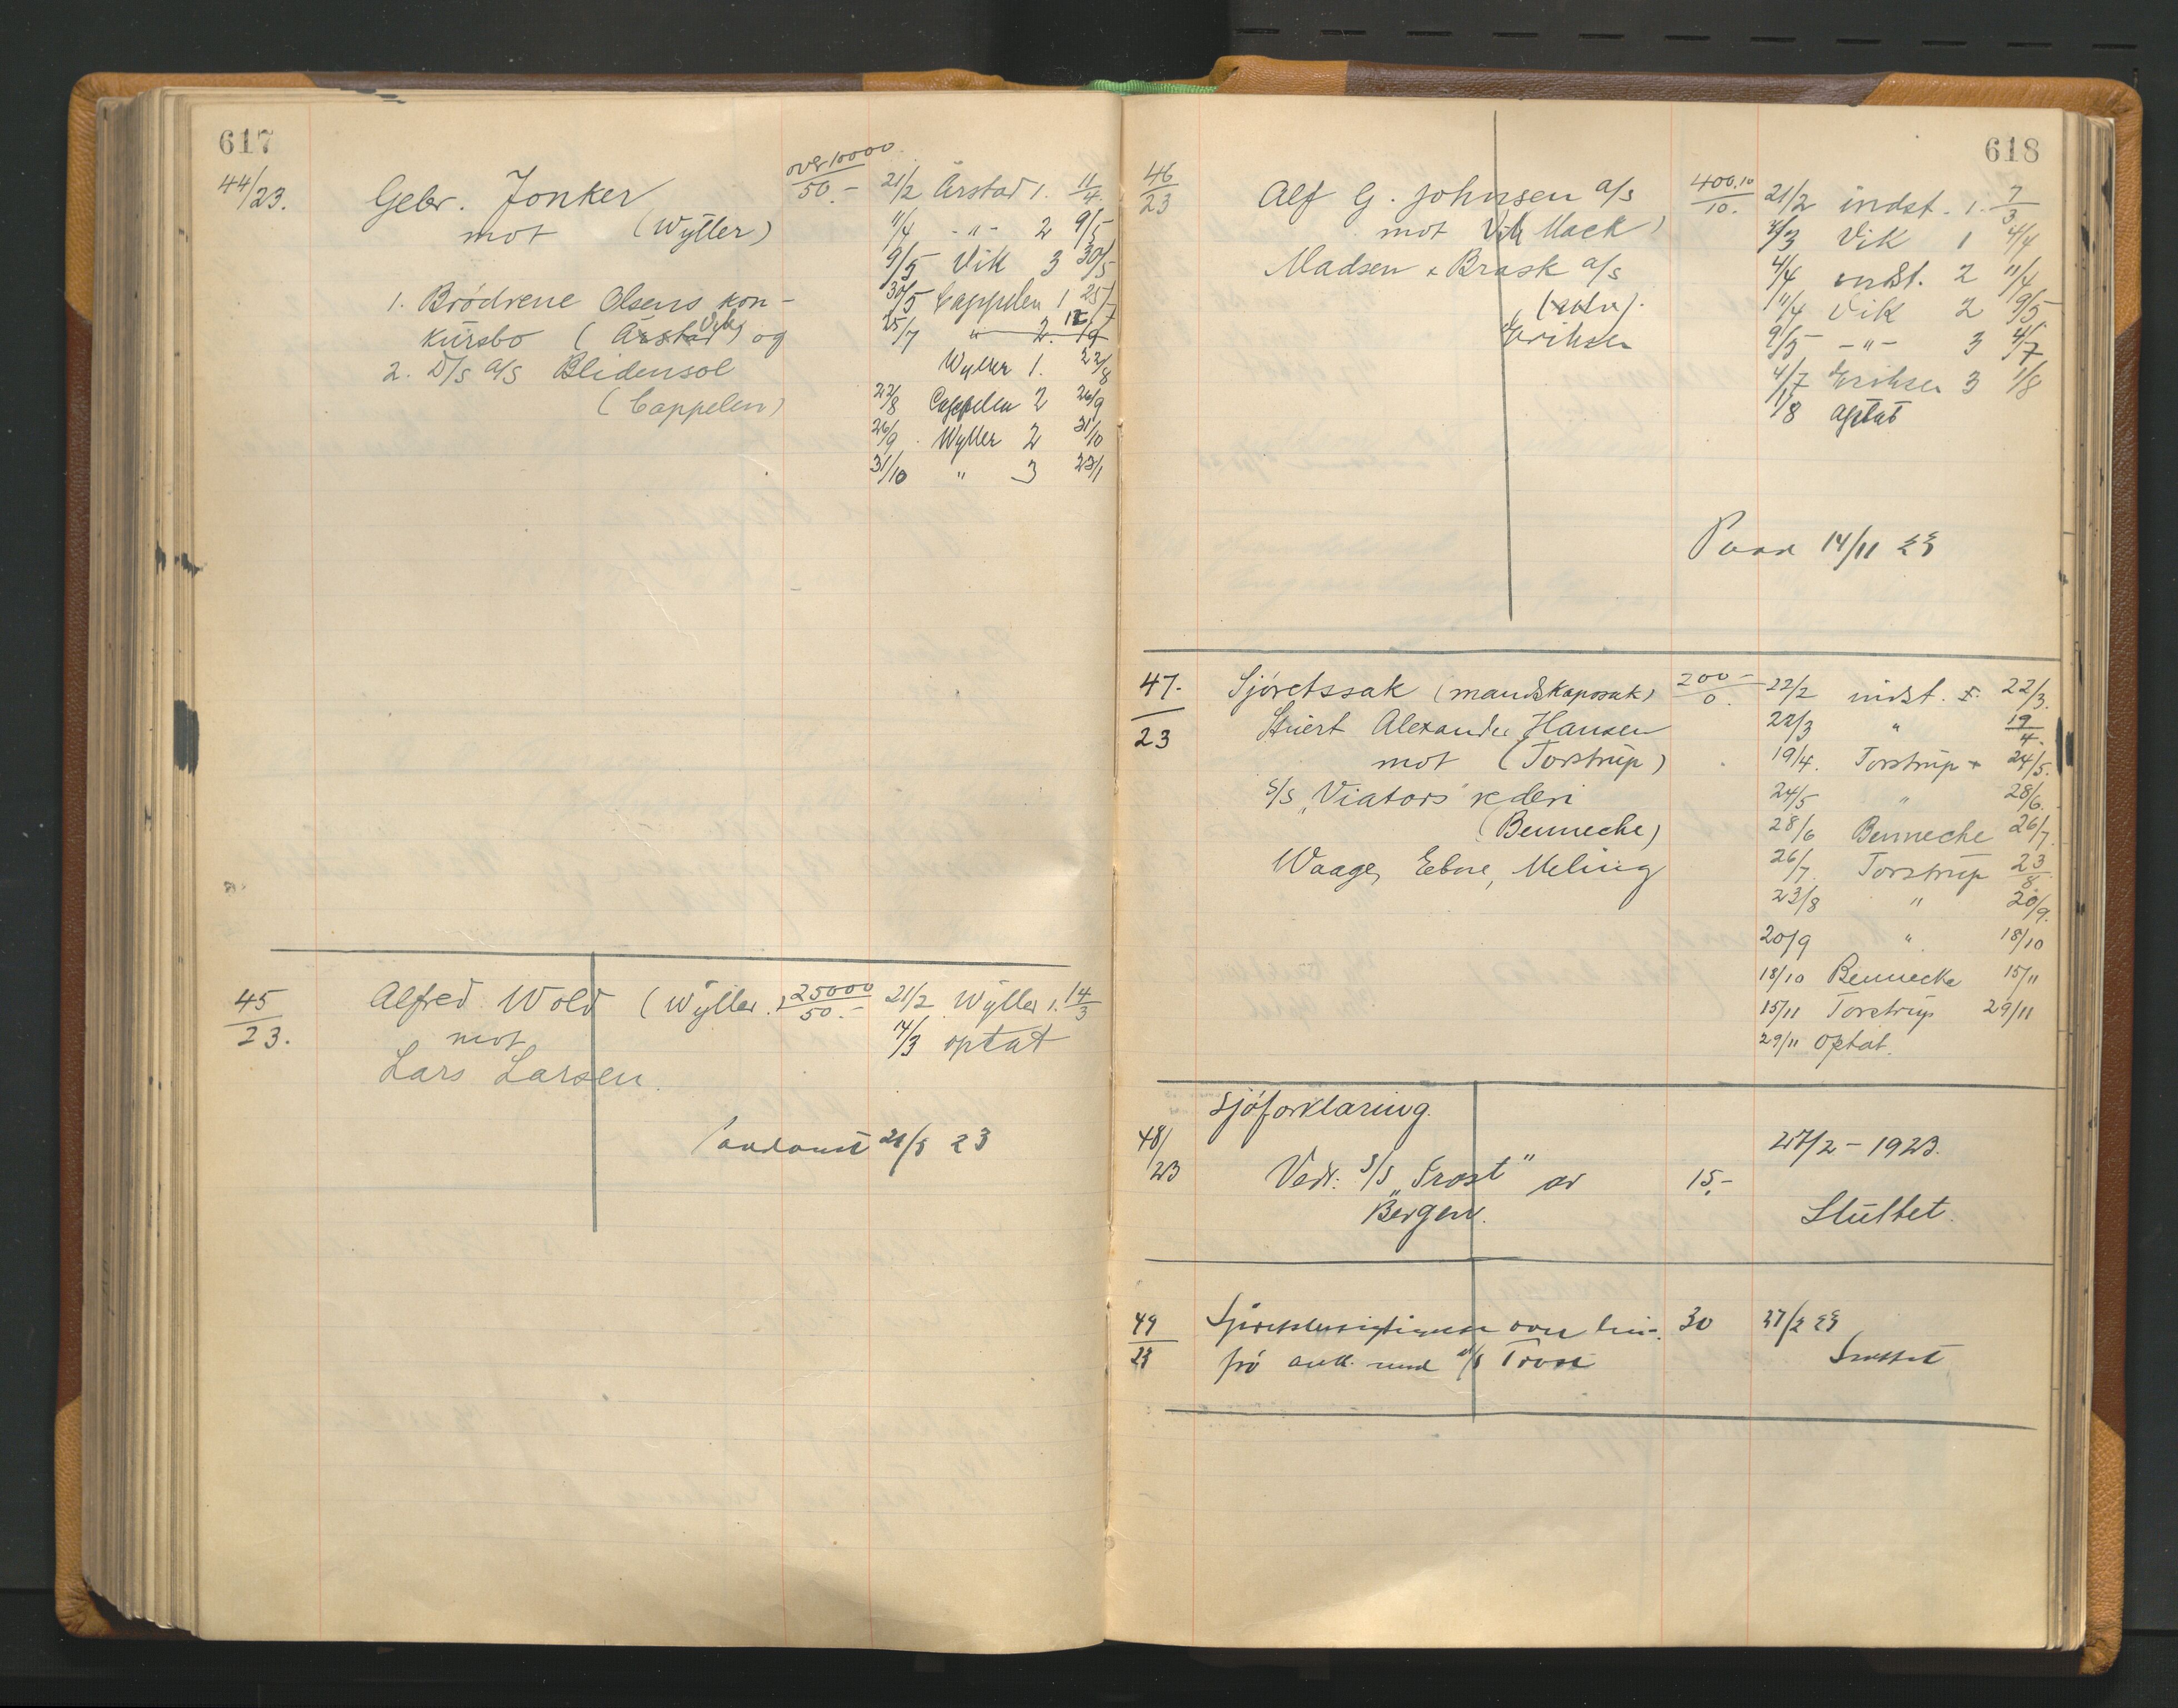 617
44/23. Gebr. Jonker over 10000 / 50.- 21/2 Årstad 1. 11/4.
mot (Wyller) 11/4 -"- 2 9/5
9/5 Vik 3 30/5
1. Brødrene Olsens kon- 30/5 Cappelen 1 25/7
kursbo (Årstad Vik) og 25/7 " 2. 19
2. D/s a/s Blidensol Wyller 1. 22/8
(Cappelen) 22/8 Cappelen 2 26/9
26/9 Wyller 2 31/10
31/10 " 3 23/1
45/23. Alfred Wold (Wyller.) 25000/50.- 21/2 Wyller 1. 14/3
mot 14/3 optat
Lars Larsen.
23
618
46/23 Alf G. Johnsen a/s 400.10/10. 21/2 indst. 1. 7/3
mot Vik Mack) 7/3 Vik 1 4/4
Madsen & Brask a/s 4/4 indst. 2 11/4
11/4 Vik 2 9/5
Eriksen 9/5 -"- 3 4/7
4/7 Eriksen 3 1/8
1/8 optat
14/11 23
47./23 Sjøretssak (mandskapssak) 200-/0. 22/2 indst. 22/3.
Stuert Alexander Hansen 22/3 " 19/4.
mot (Torstrup) 19/4. Torstrup 24/5.
S/S "Viators" rederi 24/5 " 28/6.
(Benneche) 28/6 Benneche 26/7.
Waage, Ebne, Meling 26/7. Torstrup 23/8.
23/8 " 20/9.
20/9 " 18/10
18/10 Bennecke 15/11
15/11 Torstrup 29/11
29/11 optat.
Sjøforklaring.
48/23 27/2-1923.
Vedr: S/S "Trost" av 15,-
Bergen. Sluttet.
49/23 over 30 27/2 23
frø ank. med S/S Trost Sluttet